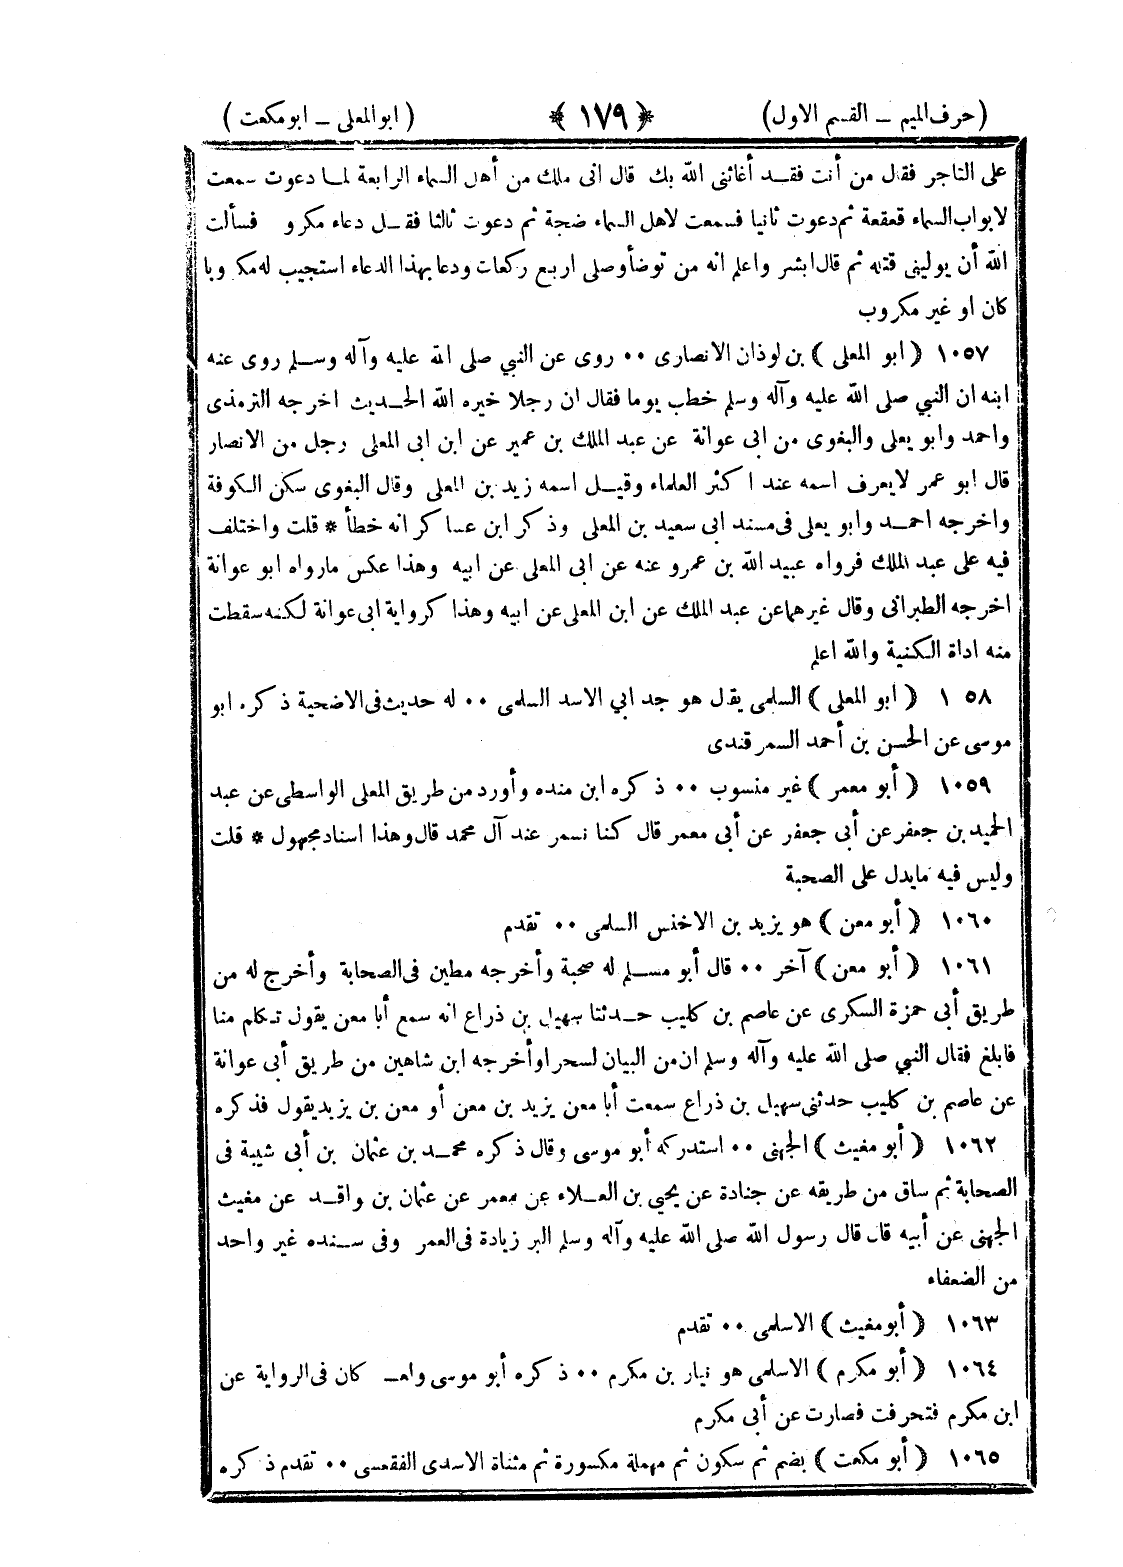 (حرف الميم ــ القسم الاول) ﴿١٧٩﴾ (ابو المعلى ــ ابو مكعت)
على التاجر فقال من أنت فقد أغاثنى الله بك قال انى ملك من أهل السماء الرابعة لما دعوت سمعت
لابواب السماء قعقعة ثم دعوت ثانيا فسمعت لاهل السماء ضجة ثم دعوت ثالثا فقيل دعاء مكرو فسألت
الله أن يولينى قتله ثم قال ابشر واعلم انه من توضأ وصلى اربع ركعات ودعا بهذا الدعاء استجيب له مكروبا
كان او غير مكروب
١٠٥٧ (ابو المعلى) بن لوذان الانصارى ٠٠ روى عن النبي صلى الله عليه وآله وسلم روى عنه
ابنه ان النبي صلى الله عليه وآله وسلم خطب يوما فقال ان رجلا خيره الله الحديث اخرجه الترمذى
واحمد وابو يعلى والبغوى من ابى عوانة عن عبد الملك بن عمير عن ابن ابى المعلى رجل من الانصار
قال ابو عمر لا يعرف اسمه عند اكثر العلماء وقيل اسمه زيد بن المعلى وقال البغوى سكن الكوفة
واخرجه احمد وابو يعلى فى مسند ابى سعيد بن المعلى وذكر ابن عساكر انه خطأ * قلت واختلف
فيه على عبد الملك فرواه عبيد الله بن عمرو عنه عن ابى المعلى عن ابيه وهذا عكس مارواه ابو عوانة
اخرجه الطبرانى وقال غيرهما عن عبد الملك عن ابن المعلى عن ابيه وهذا كرواية ابى عوانة لكنه سقطت
منه اداة الكنية والله اعلم
١ ٥٨ (ابو المعلى) السلمى يقال هو جد ابي الاسد السلمى ٠٠ له حديث فى الاضحية ذكره ابو
موسى عن الحسن بن أحمد السمرقندى
١٠٥٩ (أبو معمر) غير منسوب ٠٠ ذكره ابن منده وأورد من طريق المعلى الواسطى عن عبد
الحميد بن جعفر عن أبى جعفر عن أبى معمر قال كنا نسمر عند آل محمد قال وهذا اسناد مجهول * قلت
وليس فيه مايدل على الصحبة
١٠٦٠ (أبو معن) هو يزيد بن الاخنس السلمى ٠٠ تقدم
١٠٦١ (أبو معن) آخر ٠٠ قال أبو مسلم له صحبة وأخرجه مطين فى الصحابة وأخرج له من
طريق أبى حمزة السكرى عن عاصم بن كليب حدثنا سهيل بن ذراع انه سمع أبا معن يقول تكلم منا
فابلغ فقال النبي صلى الله عليه وآله وسلم ان من البيان لسحرا وأخرجه ابن شاهين من طريق أبى عوانة
عن عاصم بن كليب حدثنى سهيل بن ذراع سمعت أبا معن يزيد بن معن أو معن بن يزيد يقول فذكره
١٠٦٢ (أبو مغيث) الجهنى ٠٠ استدركه أبو موسى وقال ذكره محمد بن عثمان بن أبى شيبة فى
الصحابة ثم ساق من طريقه عن جنادة عن يحيى بن العلاء عن معمر عن عثمان بن واقد عن مغيث
الجهنى عن أبيه قال قال رسول الله صلى الله عليه وآله وسلم البر زيادة فى العمر وفى سنده غير واحد
من الضعفاء
١٠٦٣ (أبو مغيث) الاسلمى ٠٠ تقدم
١٠٦٤ (أبو مكرم) الاسلمى هو نيار بن مكرم ٠٠ ذكره أبو موسى ولعـ كان فى الرواية عن
ابن مكرم فتحرفت فصارت عن أبى مكرم
١٠٦٥ (أبو مكعت) بضم ثم سكون ثم مهملة مكسورة ثم مثناة الاسدى الفقعسى ٠٠ تقدم ذكره